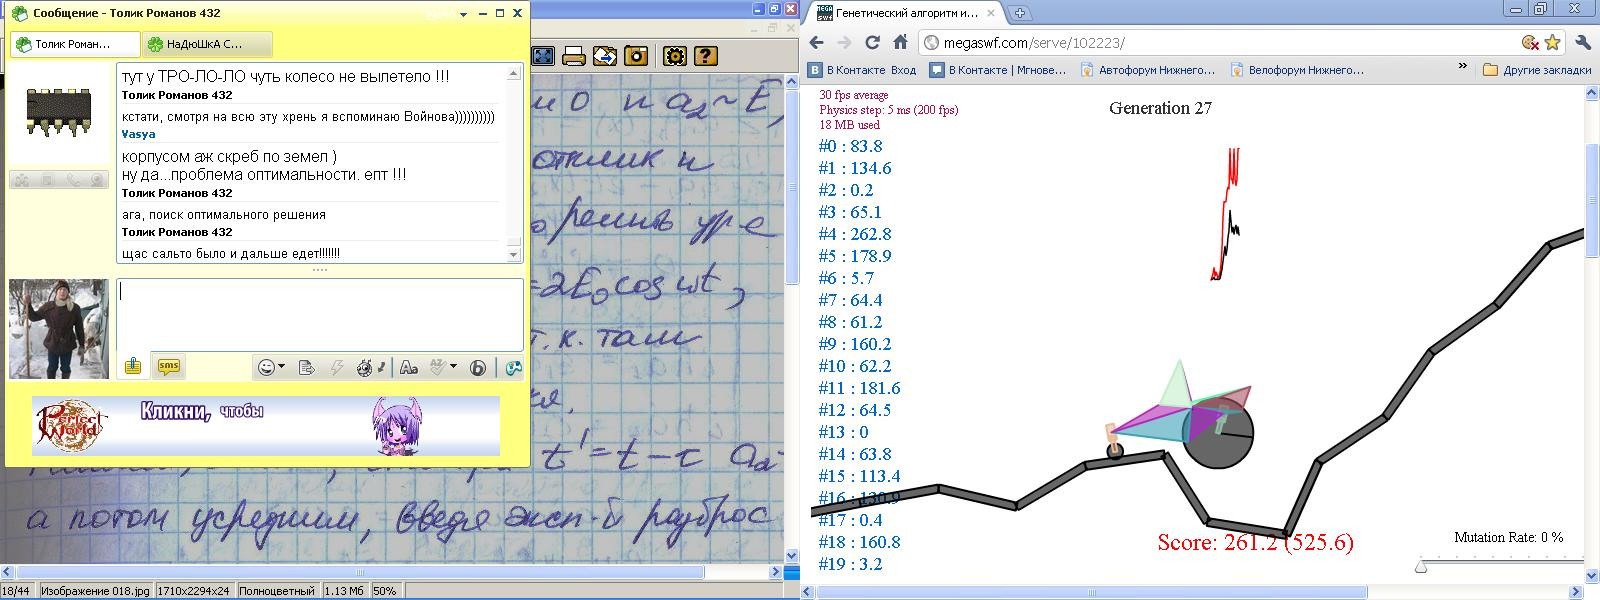 Сообщение - Толик Романов 432
Толик Роман...
НаДюШкА С...
тут у ТРО-ЛО-ЛО чуть колесо не вылетело !!!
Толик Романов 432
кстати, смотря на всю эту хрень я вспоминаю Войнова))))))))))
Vasya
корпусом аж скреб по земел )
ну да...проблема оптимальности. епт !!!
Толик Романов 432
ага, поиск оптимального решения
Толик Романов 432
щас сальто было и дальше едет!!!!!!!
sms
Aa
Perfect World
Кликни, чтобы
и a₂~E,
отклик и
решив ур-е
=2E₀cos ωt,
т.к. там
t'=t-τ
а потом усредним, введя эксп-й разброс
18/44
Изображение 018.jpg
1710x2294x24
Полноцветный
1.13 Мб
50%
MEGA swf
Генетический алгоритм и...
megaswf.com/serve/102223/
В Контакте Вход
В Контакте | Мгнове...
Автофорум Нижнего...
Велофорум Нижнего...
»
Другие закладки
30 fps average
Physics step: 5 ms (200 fps)
18 MB used
Generation 27
#0 : 83.8
#1 : 134.6
#2 : 0.2
#3 : 65.1
#4 : 262.8
#5 : 178.9
#6 : 5.7
#7 : 64.4
#8 : 61.2
#9 : 160.2
#10 : 62.2
#11 : 181.6
#12 : 64.5
#13 : 0
#14 : 63.8
#15 : 113.4
#16 : 130.9
#17 : 0.4
#18 : 160.8
#19 : 3.2
Score: 261.2 (525.6)
Mutation Rate: 0 %